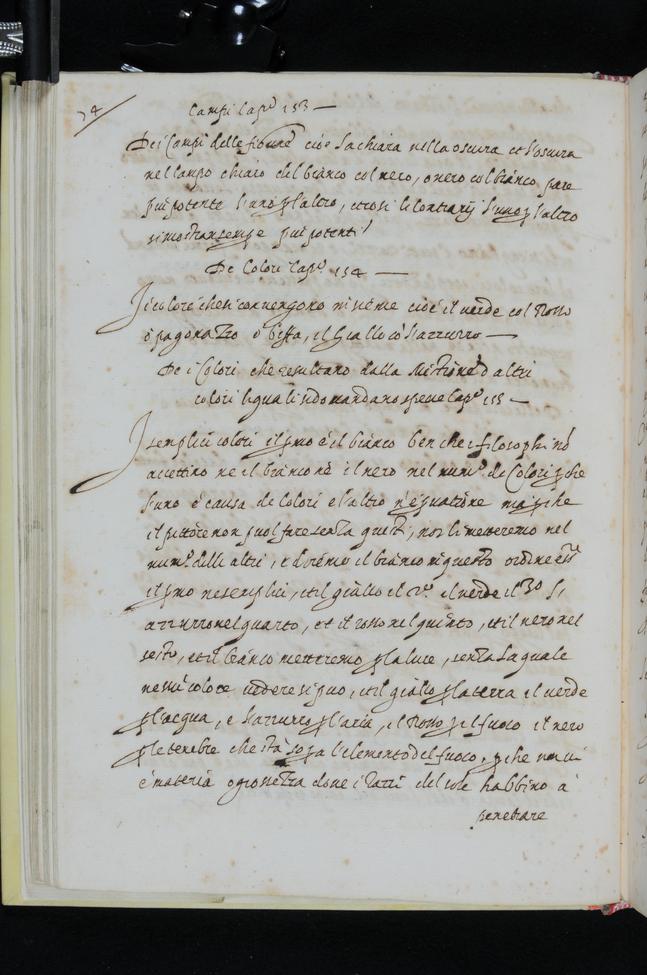 74
Campi Cap.º 153 —
Dei Campi delle figure cioè la chiara nella oscura et l'oscura
nel campo chiaro del bianco col nero, o nero col bianco pare
più potente l'uno p l'altro, et così li contrarij l'uno p l'altro
si mostran sempre più potenti
De Colori Cap.º 154 —
I colori che si convengono insieme cioè il verde col Rosso
o pagonazzo o biffa, il Giallo cò l'azzurro —
De i Colori che resultano dalla Mistione d altri
colori li quali si domandano speue Cap.º 155 —
I semplici colori il pmo è il bianco ben che i filosophi nò
accettino ne il bianco nè il nero nel num.º de Colori p che
l'uno è causa de colori e l'altro n'è privatione ma p che
il pittore non può fare senza questi, noi li metteremo nel
num.º delli altri, e diremo il bianco in questo ordine ess.
il pmo ne semplici, et il giallo il 2º il verde il 3º l'
azzurro nel quarto, et il rosso nel quinto, et il nero nel
sesto, et il bianco metteremo p la luce, senza la quale
nessù colore vedere si puo, et il giallo p la terra il verde
p l'acqua, e l'azzurro p l'aria, il Rosso p il fuoco il nero
p le tenebre che stà sopra l'elemento del fuoco, p che non vi
è materia o grossezza dove i razzi del sole habbino à
penetrare